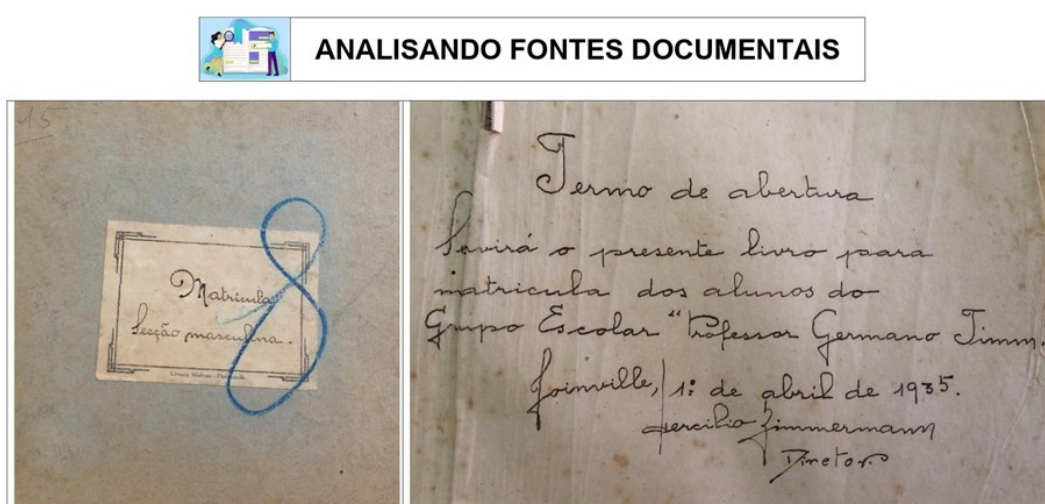 ANALISANDO FONTES DOCUMENTAIS
15
Matricula
Secção masculina.
8
Termo de abertura
Servirá o presente livro para
matricula dos alunos do
Grupo Escolar "Professor Germano Timm.
Joinville, 1º de abril de 1935.
Zimmermann
Diretor